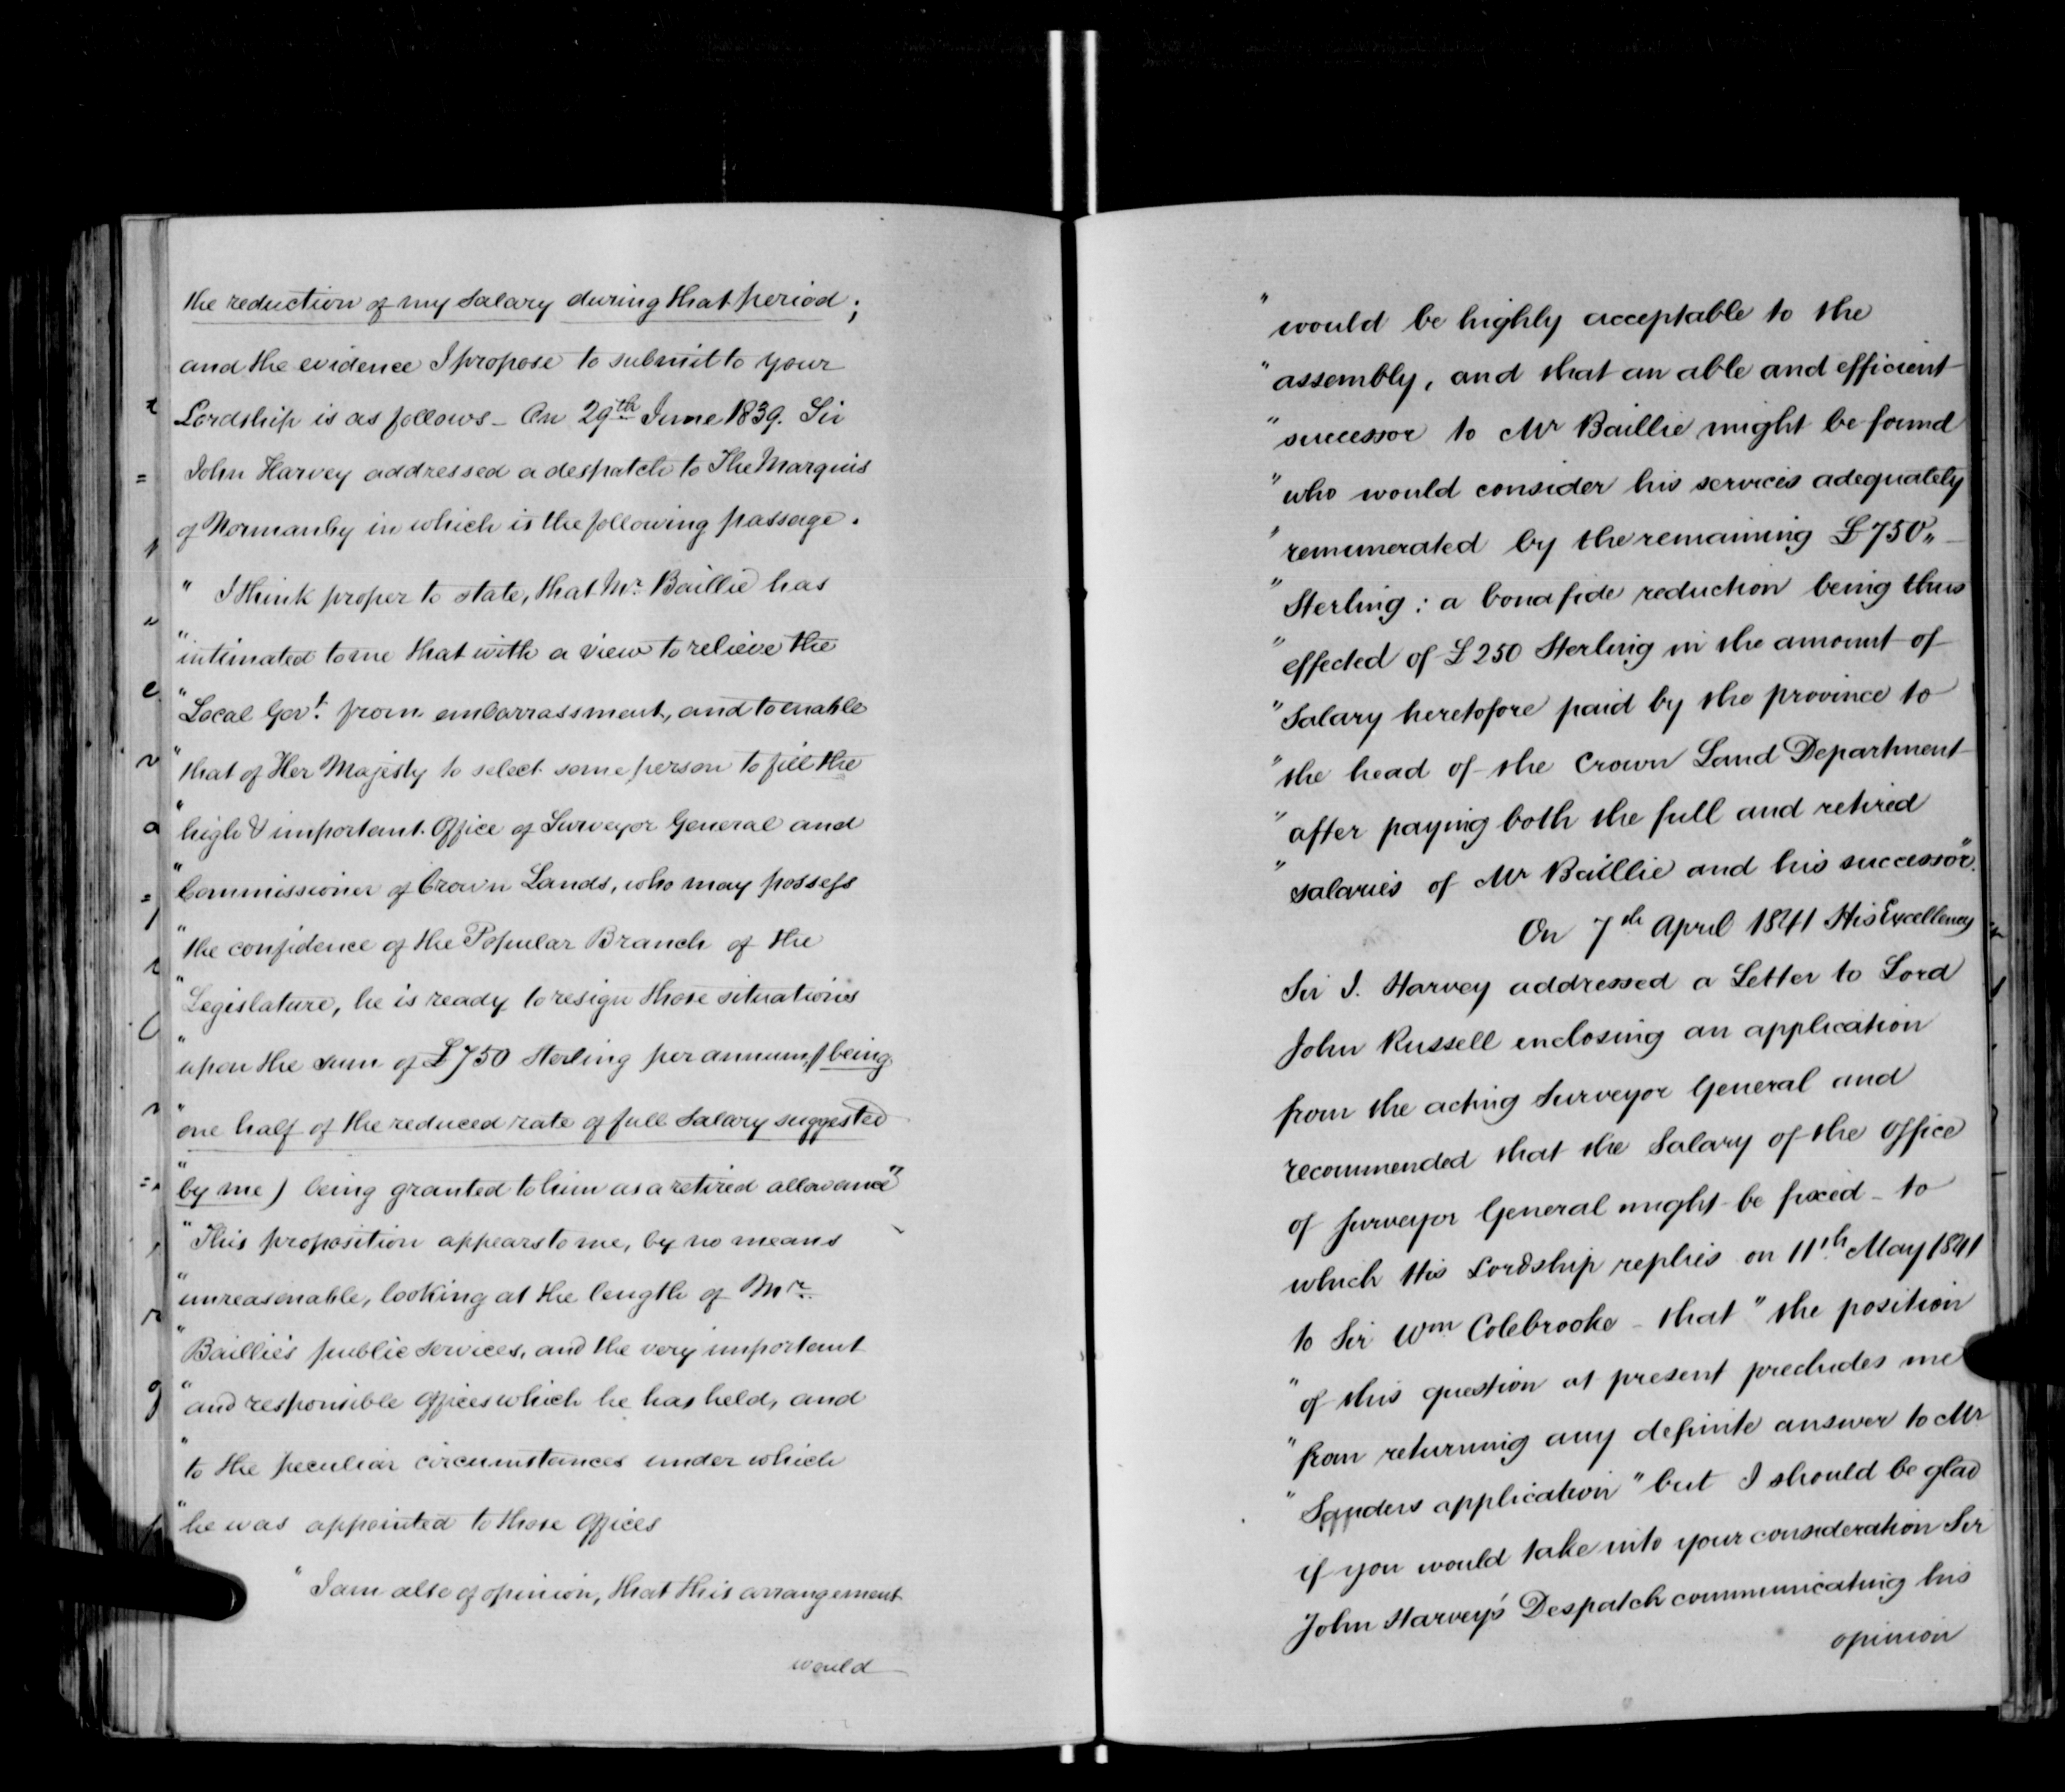 the reduction of my Salary during that period;
and the evidence I propose to submit to your
Lordship is as follows_ On 29th June 1839. Sir
John Harvey addressed a despatch to The Marquis
of Normanby in which is the following passage.
" I think proper to state, that Mr. Baillie has
" intimated to me that with a view to relieve the
" Local Govt. from embarrassment, and to enable
" that of Her Majesty to select some person to fill the
" high & important Office of Surveyor General and
" Commissioner of Crown Lands, who may possess
" the confidence of the Popular Branch of the
" Legislature, he is ready to resign those situations
" upon the sum of £750 Sterling per annum (being
" one half of the reduced rate of full Salary suggested
" by me) being granted to him as a retired allowance"
" This proposition appears to me, by no means
" unreasonable, looking at the length of Mr.
" Baillie's public services, and the very important
" and responsible offices which he has held, and
" to the peculiar circumstances under which
" he was appointed to those offices
" I am also of opinion, that this arrangement
would
" would be highly acceptable to the
" assembly, and that an able and efficient
" successor to Mr Baillie might be found
" who would consider his services adequately
" remunerated by the remaining £750"_
" Sterling: a bona fide reduction being thus
" effected of £250 Sterling in the amount of
" Salary heretofore paid by the province to
" the head of the Crown Land Department
" after paying both the full and retired
" salaries of Mr Baillie and his successor."
On 7th April 1841 His Excellency
Sir J. Harvey addressed a Letter to Lord
John Russell enclosing an application
from the acting Surveyor General and
recommended that the Salary of the office
of Surveyor General might be fixed_ to
which His Lordship replies on 11th May 1841
to Sir Wm Colebrooke_ that "the position
" of this question at present precludes me
" from returning any definite answer to Mr
" Saunders application" but I should be glad
if you would take into your consideration Sir
John Harvey's Despatch communicating his
opinion